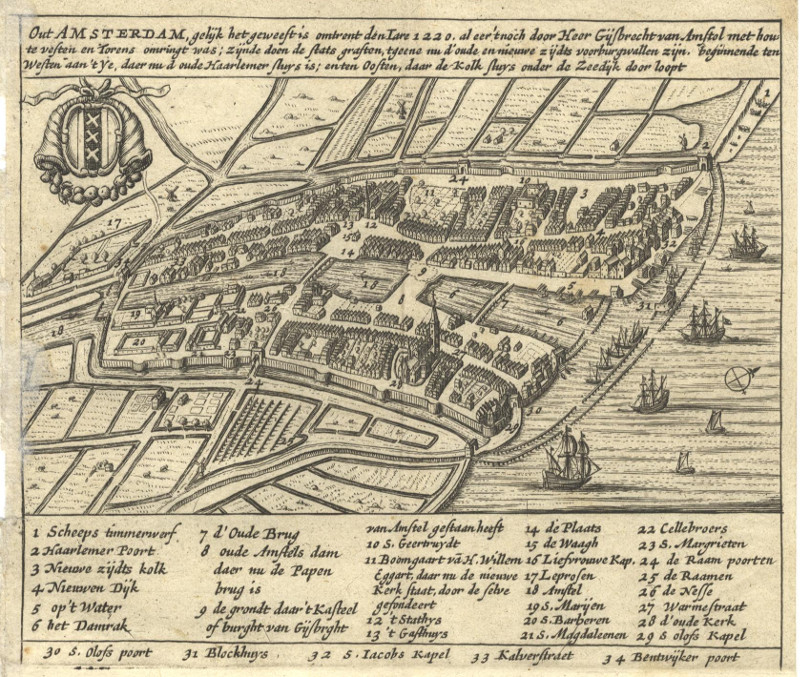 Out AMSTERDAM, gelijk het geweest is omtrent den Iare 1220. al eer 't noch door Heer Gijsbrecht van Amstel met hou
te vesten en Torens omringt was; zijnde doen de stats graften, tgeene nu d'oude en nieuwe zijdts voorburgwallen zijn. beginnende ten
Westen aan 't Ye, daer nu d'oude Haarlemer sluys is; en ten Oosten, daar de Kolk sluys onder de Zeedijk door loopt
1 Scheeps timmerwerf
2 Haarlemer Poort
3 Nieuwe zijdts kolk
4 Nieuwen Dijk
5 op't Water
6 het Damrak
7 d'Oude Brug
8 oude Amstels dam
daer nu de Papen
brug is
9 de grondt daar't Kasteel
of burght van Gijsbrght
van Amstel gestaan heeft
10 S. Geertruydt
11 Boomgaart vā H. Willem
Eggart, daar nu de nieuwe
Kerk staat, door de selve
gefondeert
12 t Stathys
13 't Gasthuys
14 de Plaats
15 de Waagh
16 Liefvrouwe Kap.
17 Leprosen
18 Amstel
19 S. Marijen
20 S. Barberen
21 S. Magdaleenen
22 Cellebroers
23 S. Margrieten
24 de Raam poorten
25 de Raamen
26 de Nesse
27 Warmestraat
28 d'oude Kerk
29 S olofs Kapel
30 S. Olofs poort
31 Blockhuys
32 S. Iacobs Kapel
33 Kalverstraet
34 Bentwijker poort